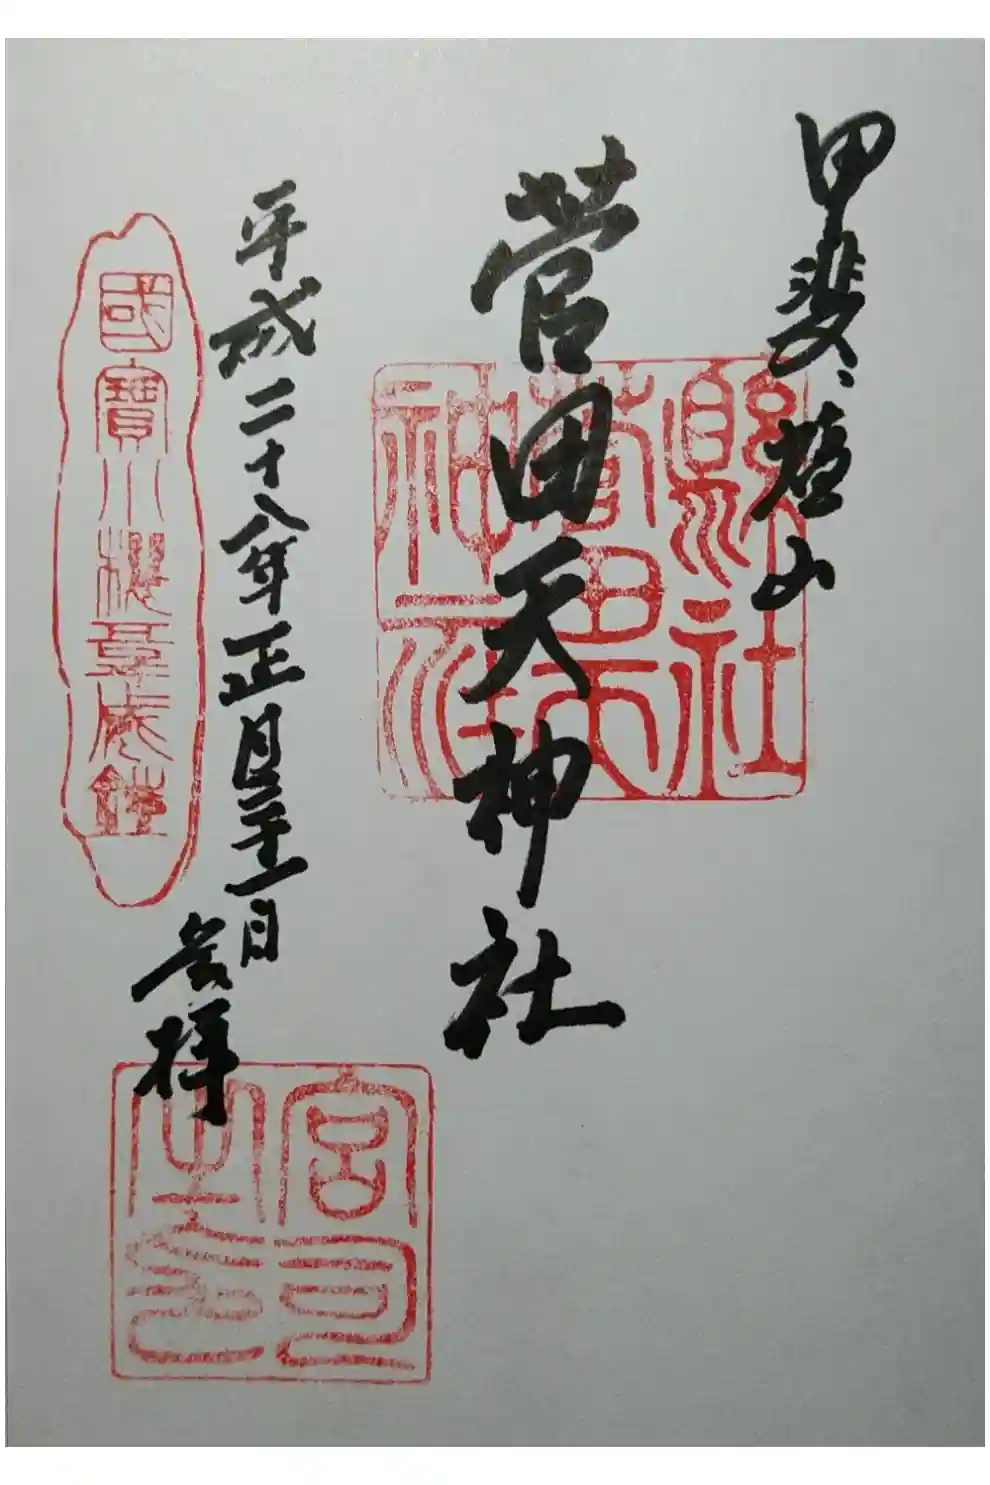 甲斐、塩山
菅田天神社
縣社
菅田天
神
平成二十八年正月三十一日
参拝
國寶小櫻韋威鎧
宮司
之印